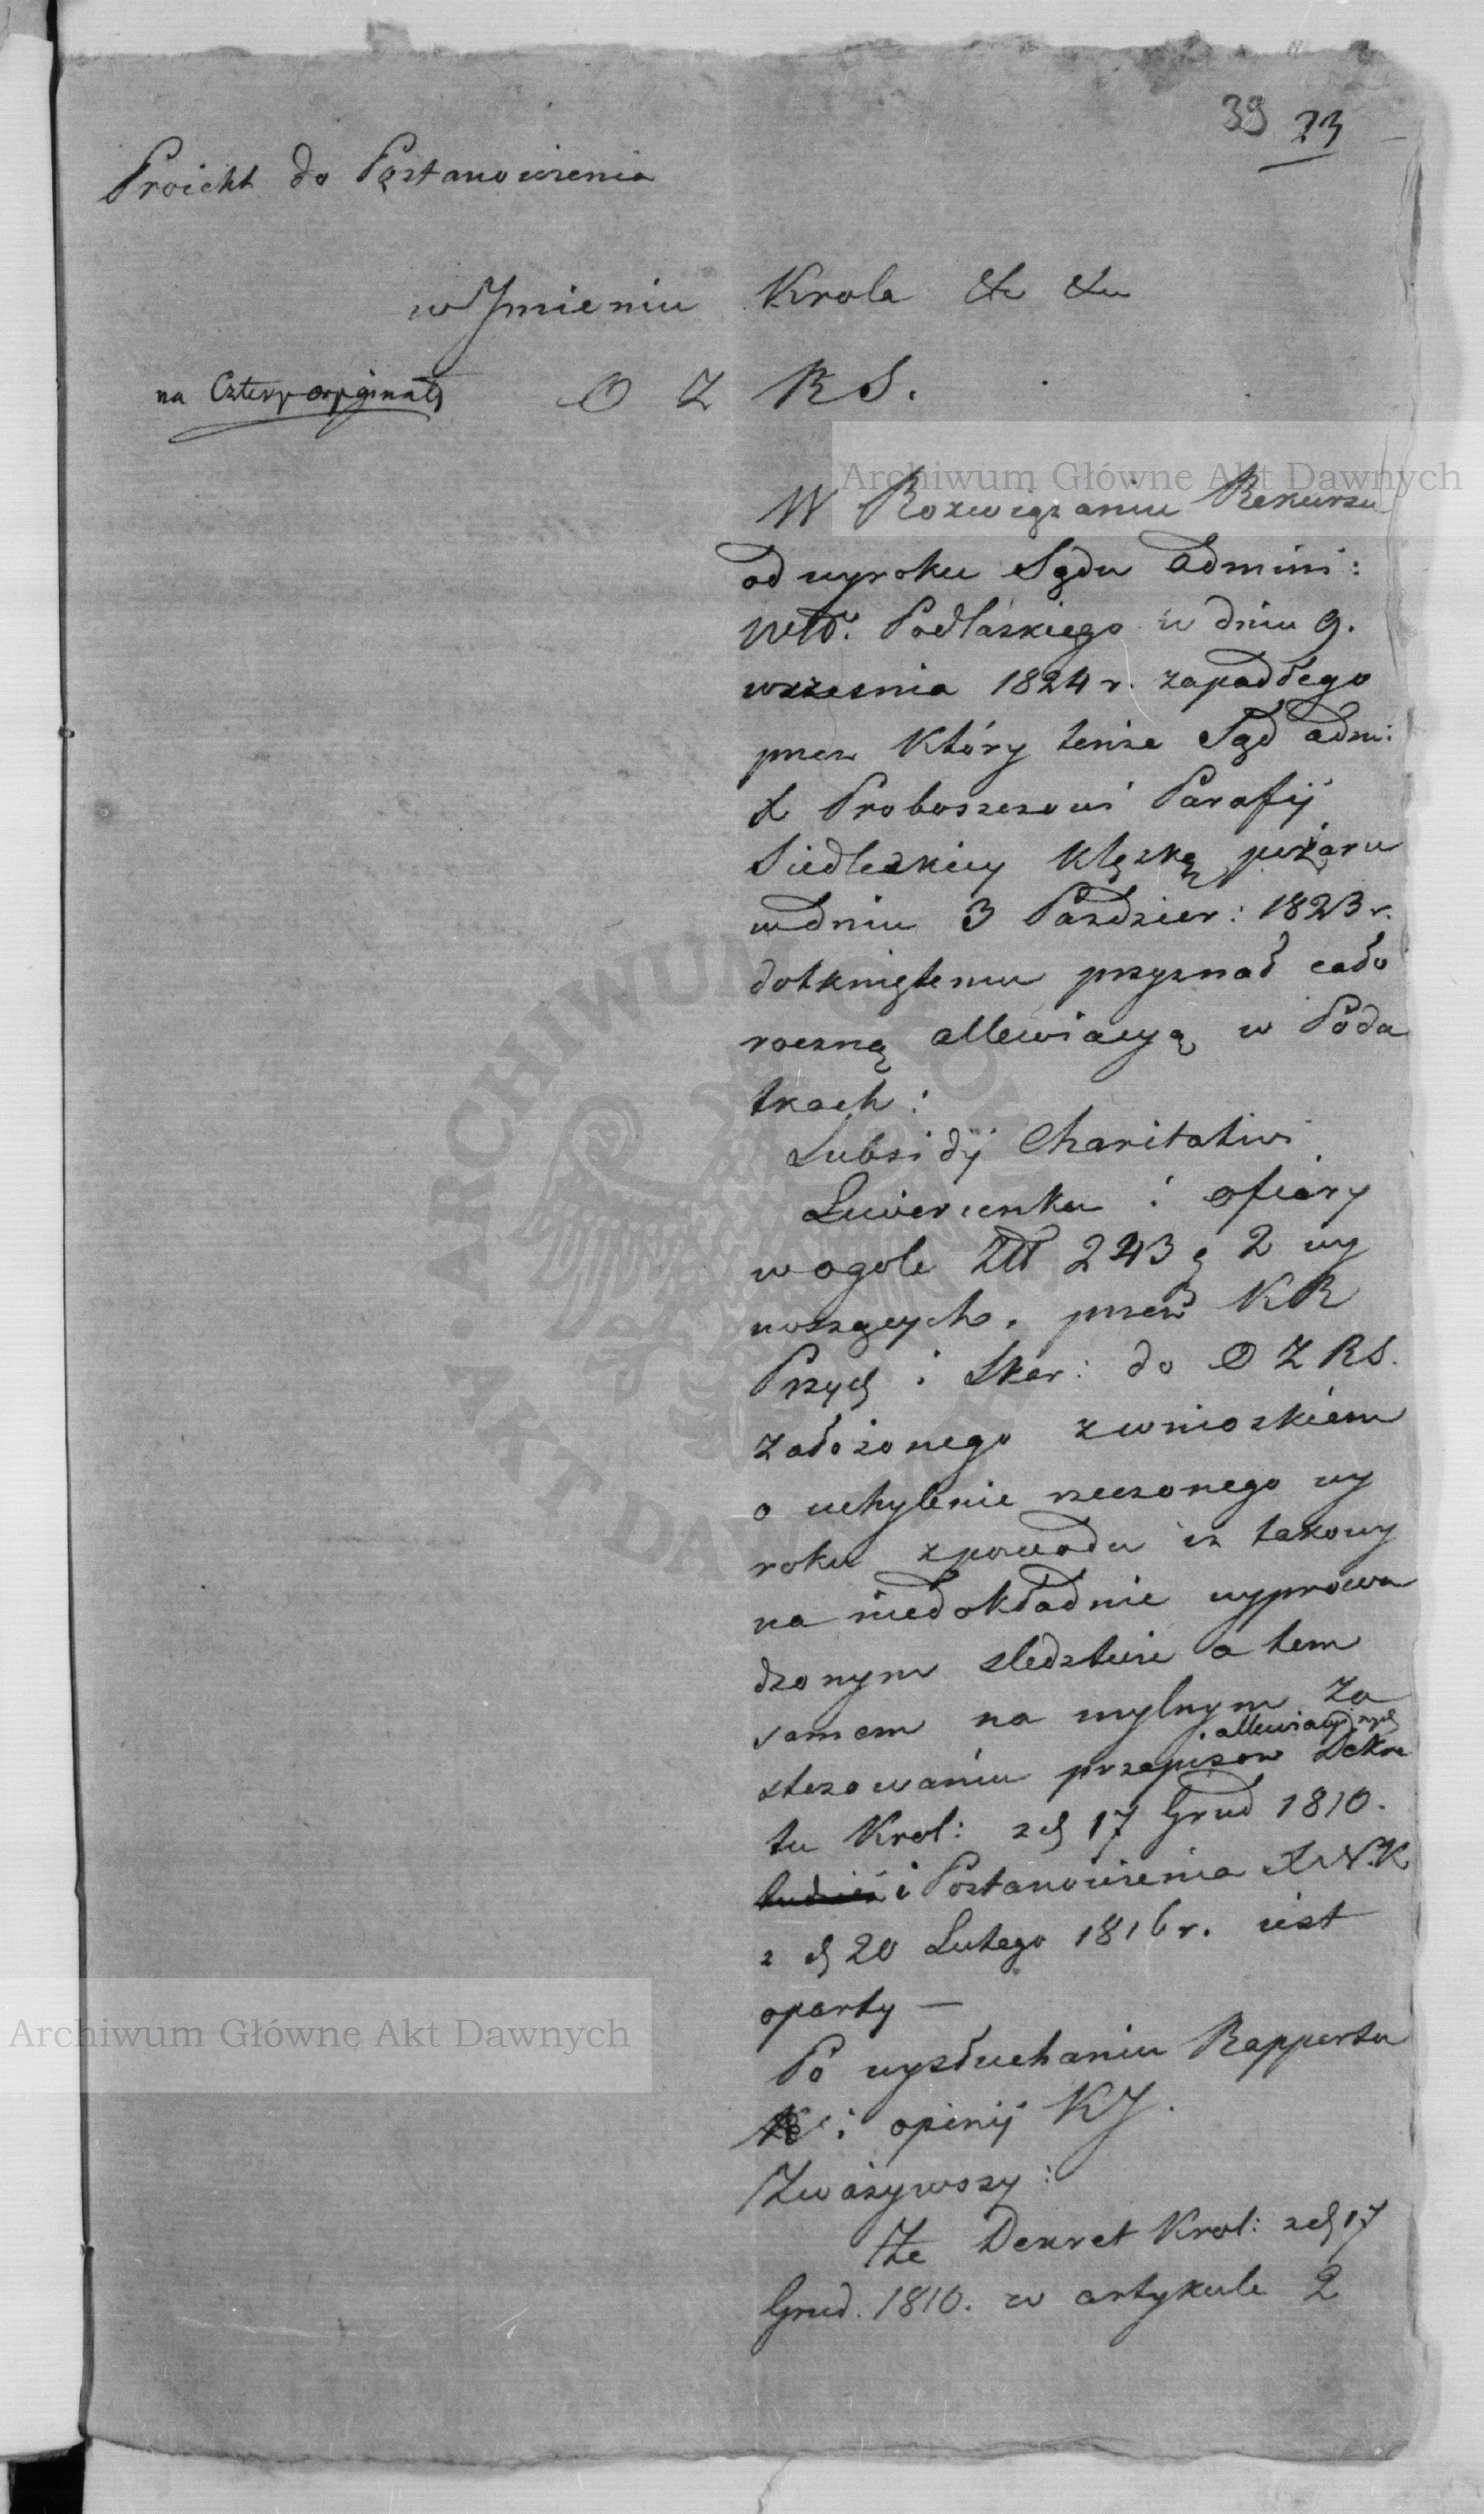 39 23
Proiekt do Postanowienia
w Jmieniu Krola & &
na Cztery oryginały
O Z R S.
W Rozwiązaniu Rekursu
od wyroku Sądu Admini:
Wdt. Podlaskiego w dniu 9.
wrzesnia 1824 r. zapadłego
przez Który tenże Sąd adm:
X Proboszczowi Parafij
Siedleckiey klęską pożaru
w dniu 3 Pazdzier: 1823 r.
dotkniętemu przyznał cało
roczną allewiacyą w Poda
tkach:
Subsidij Charitativi
Liwerunku i ofiary
w ogole Złt 243 g 2 wy
noszących, przez KR
Przych i Skar: do O Z RS.
założonego z wnioskiem
o uchylenie rzeczonego wy
roku z powodu iż takowy
na niedokładnie wyprowa
dzonym sledztwie a tem
samem na mylnym za
stosowaniu przepisow allewiacyinych Dekre
tu Krol: z d 17 Grud 1810.
i Postanowienia X N. K
z d 20 Lutego 1816 r. iest
oparty —
Po wysłuchaniu Rapportu
i opinij KJ.
Zważywszy:
Że Dekret Krol: z d 17
Grud. 1810. w artykule 2
Archiwum Główne Akt Dawnych
Archiwum Główne Akt Dawnych
ARCHIWUM GŁÓWNE AKT DAWNYCH